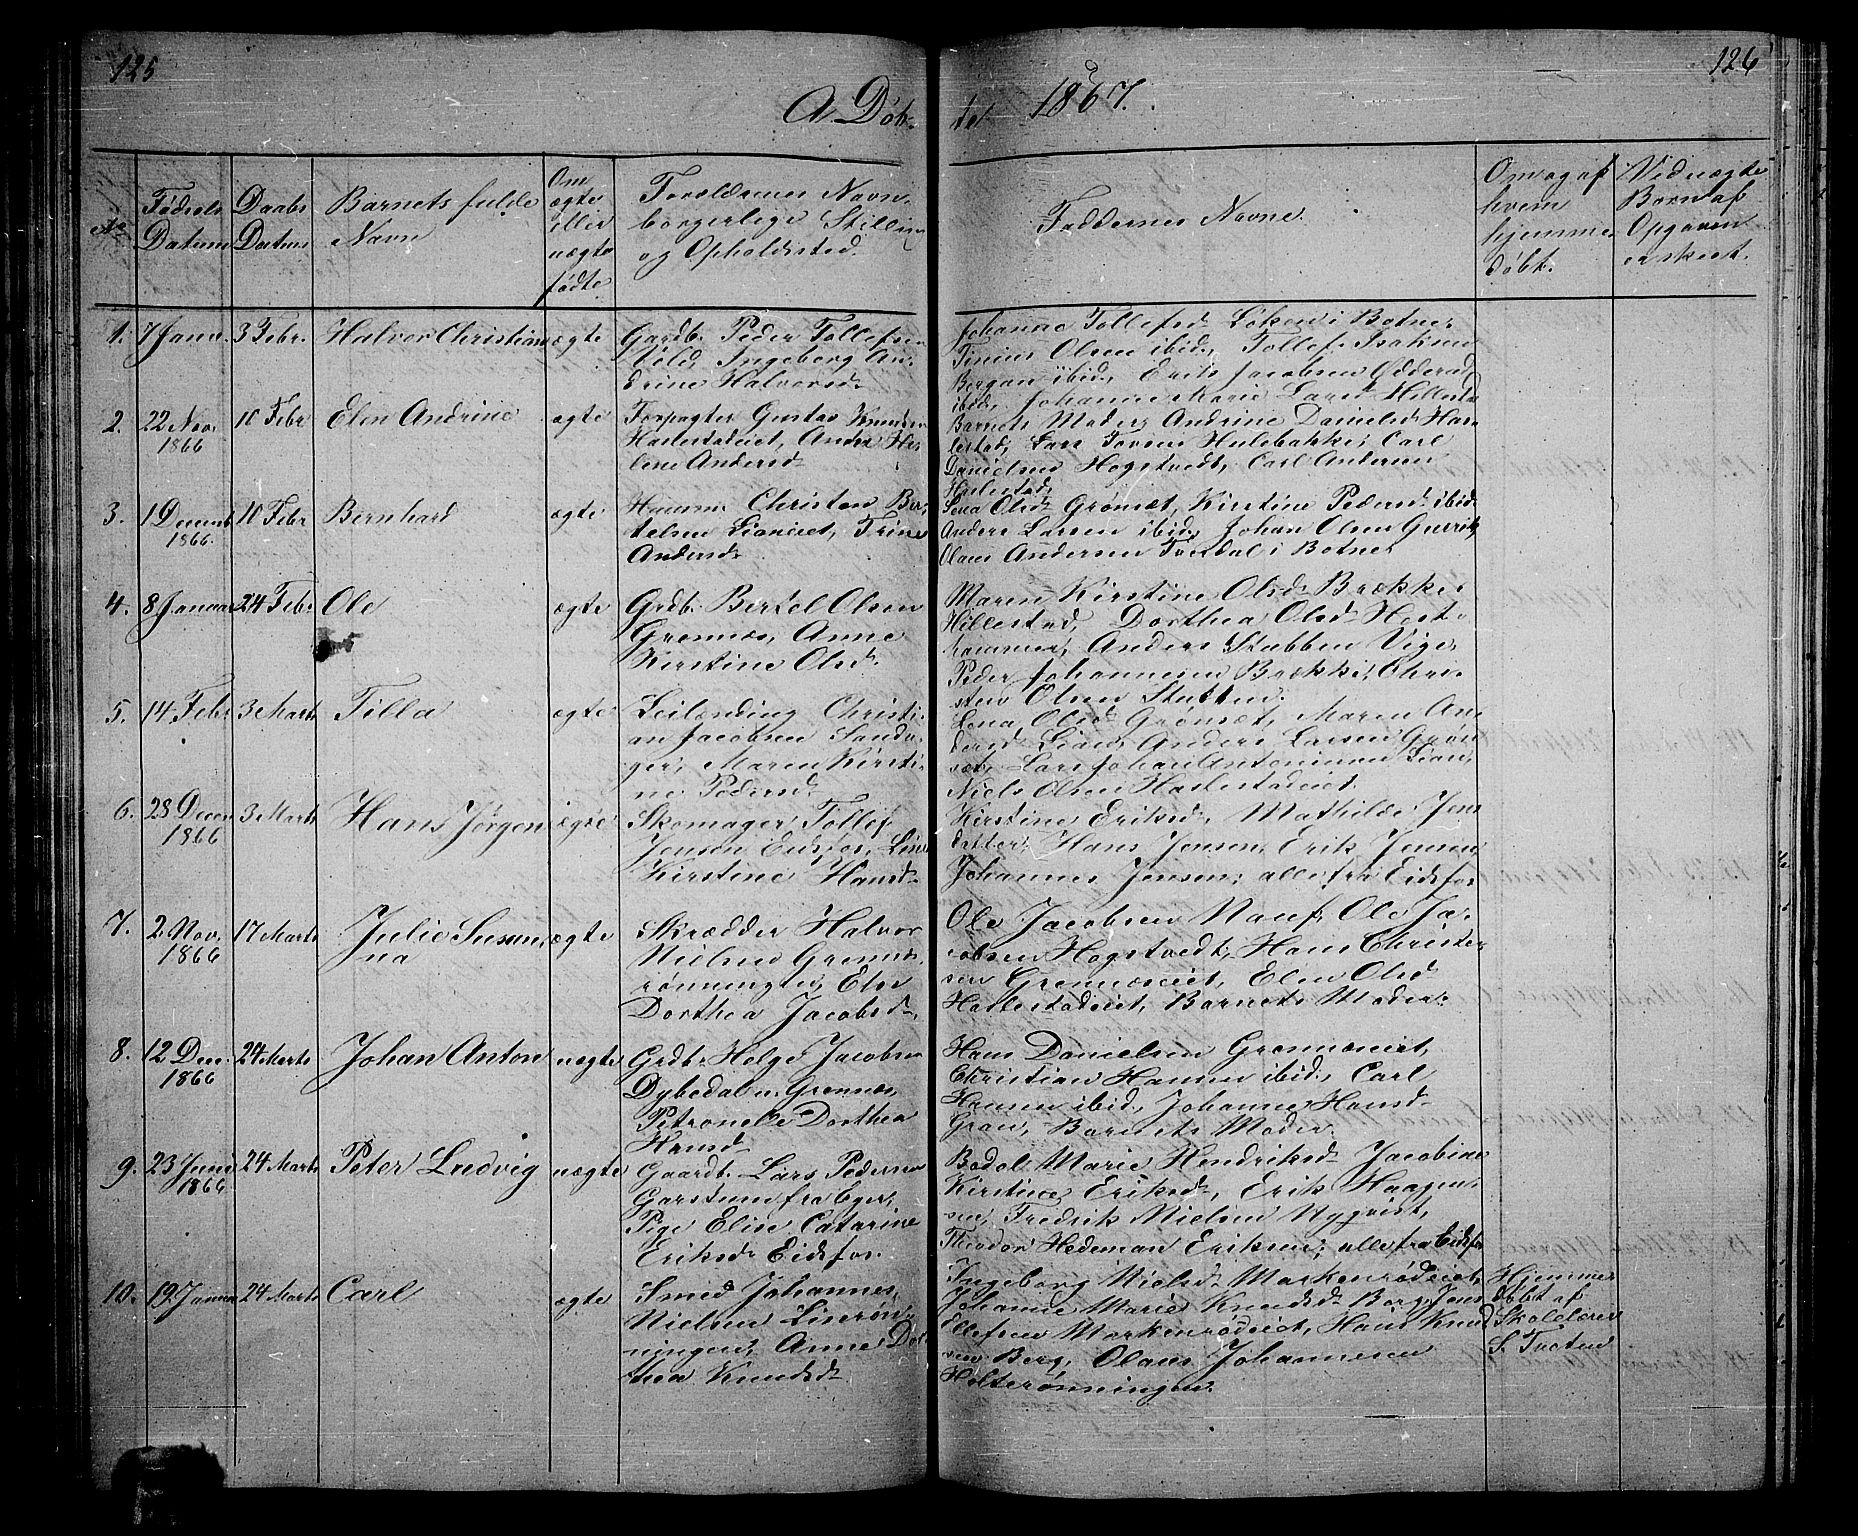 125
126
A. Døb-
te 1867.
No
Fødsels
Datum
Daabs
Datum
Barnets fulde
Navn
Om
ægte
eller
uægte
fødte
Forældrenes Navn
borgerlige Stilling
og Opholdssted.
Faddernes Navne
Om og af
hvem
hjemme-
døbt.
Ved uægte
Børn af
Opgaven
er skeet.
1. 7 Janv. 3 Febr. Halvor Christian ægte
Gardb. Peder Tollefsen
Vold, Ingeborg An-
drine Halvorsd.
Johanne Tollefsd. Løken i Botne,
Tinius Olsen ibid, Tollef Isaksen
Bergan ibid, Erik Jacobsen
ibid, Johanne Marie Larsd. Hillestad
2. 22 Nov. 1866 10 Febr Elen Andrine ægte
Forpagter Gustav Knudsen
Haslestadeiet, Andrea He-
lene Andersd.
Barnets Moder, Andrine Danielsd. Has-
lestad, Lars Hulebakke, Carl
Danielsen Hogstvedt, Carl Andersen
Haslestad
3. 1 Decemb 1866. 10 Febr Bernhard ægte
Huusm. Christen Ber-
telsen Lianeiet, Trine
Andersd.
Lena Olsd. Grønsæt, Kirstine Pedersd. ibid
Anders Larsen ibid, Johan Olsen
Olaus Andersen i Botne
4. 8 Januar 24 Febr Ole ægte
Grdb. Bertel Olsen
Grennes, Anne
Kirstine Olsd.
Maren Kirstine Olsd. Brække
Hillestad, Dorthea Olsd. Hest-
hammer, Anders Stubben Vige,
Peder Johannesen Brække, Chri-
sten Olsen
5. 14 Febr 3 Marts Tilla ægte
Leilænding Christi-
an Jacobsen Sand-
ger, Maren Kirsti-
ne Pedersd.
Lena Olsd. Grønsæt, Maren An-
dersd. Lian, Anders Larsen Grøn-
sæt, Lars Johan Antonsen Lian,
Niels Olsen Haslestadeiet.
6. 28 Decem 1866 3 Marts Hans Jørgen ægte
Skomager Tollef
Jensen Eidsfos, Line
Kirstine Hansd.
Kirstine Eriksd., Mathilde Jens
datter, Hans Jensen, Erik Jensen,
Johannes Jensen, alle fra Eidsfos
7. 2 Nov. 1866 17 Marts Julie Susan-
na ægte
Skrædder Halvor
Nielsen Grennes-
rønningen, Else
Dorthea Jacobsd.
Ole Jacobsen Nauf, Ole Ja-
cobsen Hogstvedt, Hans Christen-
sen Grennæseiet, Elen Olsd
Haslestadeiet, Barnets Moder.
8. 12 Dec. 1866 24 Marts Johan Anton uægte
Grdb. Helge Jacobsen
Dybedal u. Grennes,
Petronelle Dorthea
Hansd.
Hans Danielsen Grennæseiet,
Christian Hansen ibid., Carl
Hansen ibid, Johanne Hansd
Gran, Barnets Moder
9. 23 Juni 1866 24 Marts Peter Ludvig uægte
Gaardb. Lars Pedersen
Garstun fra Eger,
Pige Elise Catarine
Eriksd. Eidsfos.
Bodol Marie Hendriksd. Jacobine
Kirstine Eriksd., Erik Haagen-
sen, Fredrik Nielsen Nyqvist,
Theodor Hedeman Eriksen, alle fra Eidsfos
10. 19 Januar 24 Marts Carl ægte
Smed Johannes
Nielsen Linrøn-
ningen, Anne Dor-
thea Knudsd.
Ingeborg Nielsd. Markenrødeiet,
Johanne Marie Knudsd. Berg, Jens
Ellefsen Markenrødeiet, Hans Knud-
sen Berg, Olaus Johannesen
Holterønningen.
Hjemme-
døbt af
Skolelærer
S. Tveten